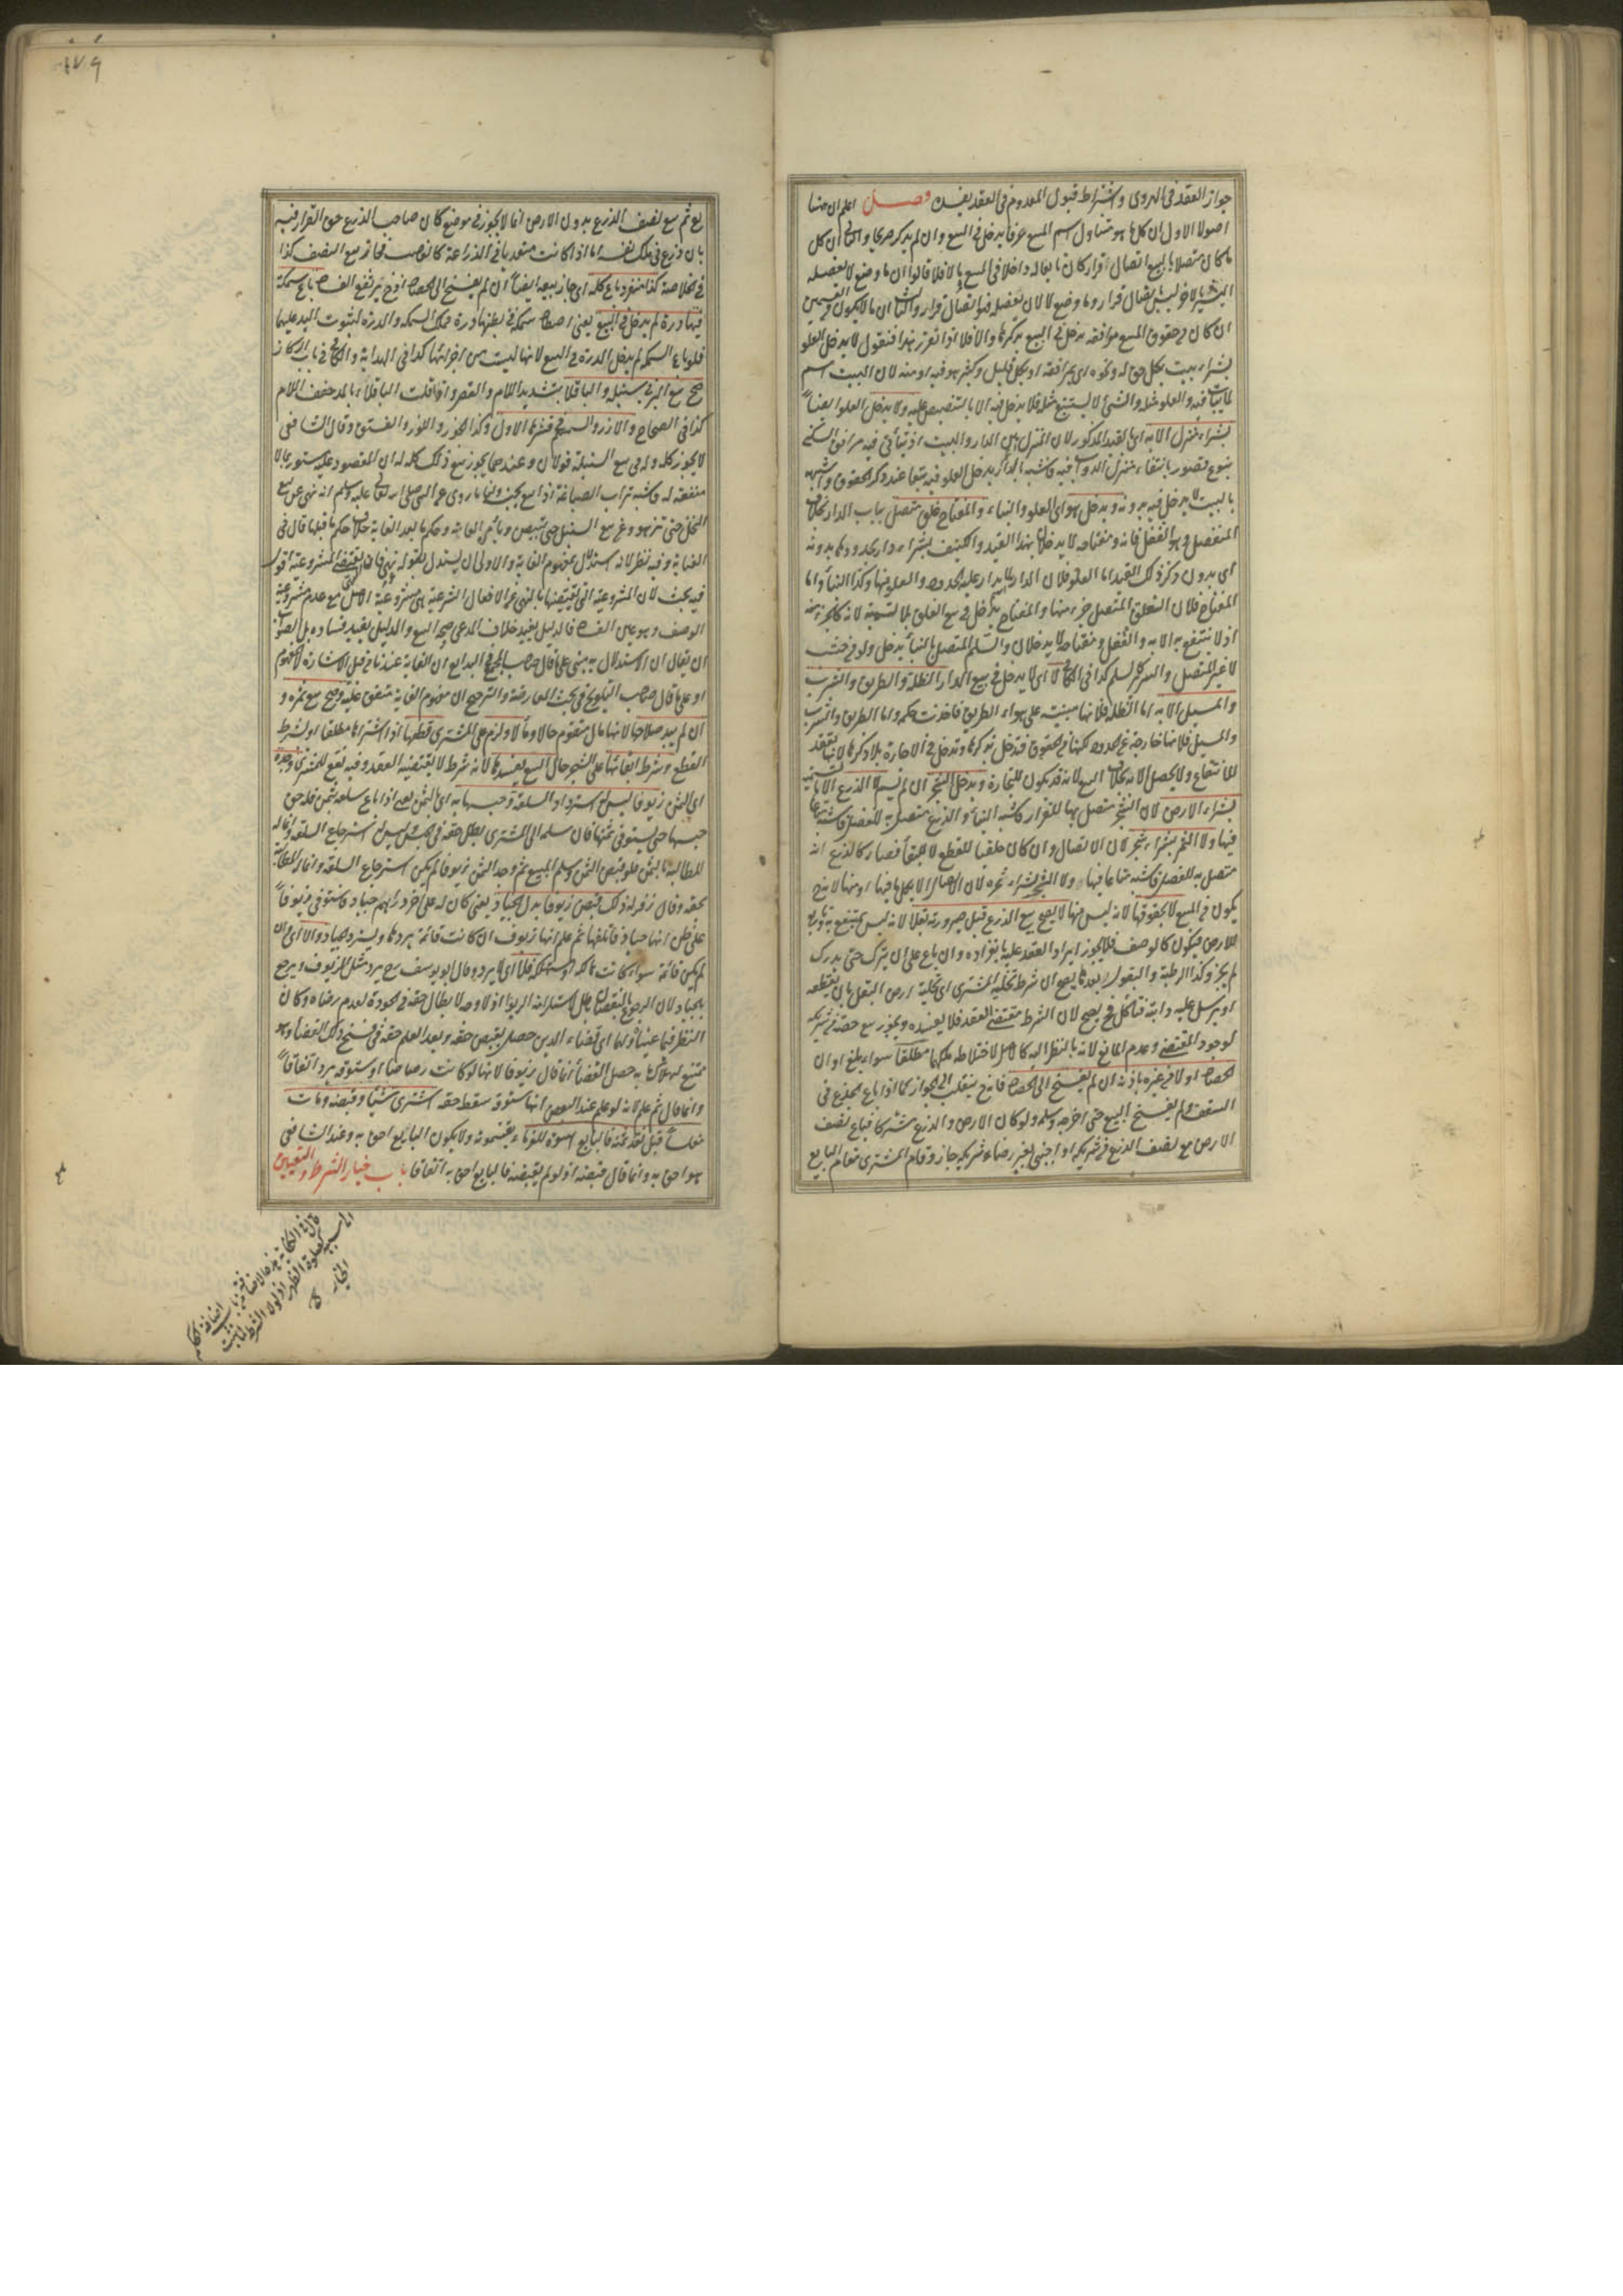 جواز العقد في الهروى واشتراط قبول المعدوم في العقد يفسده فصل اعلم ان هنا
اصولا الاول ان كل ما هو متناول اسم المبيع عرفا يدخل في البيع وان لم يذكر صريحا والثاني ان كل
ما كان متصلا بالمبيع اتصال قرار كان تابعا له داخلا في المبيع وما لا فلا قالوا ان ما وضع لا لان يفصله
البشر بالاخر ليس باتصال قرار وما وضع لا لان يفصله فهو اتصال قرار والثالث ان ما لا يكون من القسمين
ان كان من حقوق المبيع ومرافقه يدخل في البيع بذكرها والا فلا اذا تقرر هذا فنقول لا يدخل العلو
بشراء بيت بكل حق له ونحوه اى بمرافقه او بكل قليل وكثير هو فيه او منه لان البيت اسم
لما يبات فيه والعلو مثله والشئ لا يستتبع مثله فلا يدخل فيه الا بالتنصيص عليه ولا يدخل العلو ايضا
بشراء منزل الا به اى بالقيد المذكور لان المنزل بين الدار والبيت اذ يتأتى فيه مرافق السكنى
بنوع قصور بانتفاء منزل الدواب فيه فلشبهه بالدار يدخل العلو فيه تبعا عند ذكر الحقوق ولشبهه
بالبيت لا يدخل فيه بدونه ويدخل هو اى العلو والبناء والمفتاح غلق متصل بباب الدار بخلاف
المنفصل وهو القفل فانه ومفتاحه لا يدخلان بهذا القيد والكنيف بشراء دار بحدودها بدونه
اى بدون ذكر ذلك القيد اما العلو فلان الدار لما يدار عليه الحدود والعلو منها وكذا البناء واما
المفتاح فلان الغلق المتصل جزء منها والمفتاح يدخل في بيع الغلق بلا تسمية لانه كالجزء منه
اذ لا ينتفع به الا به والقفل ومفتاحه لا يدخلان والسلم المتصل بالبناء يدخل ولو من خشب
لا غير المتصل والسرر كالسلم كذا في الكافي لا اى لا يدخل في بيع الدار الظلة والطريق والشرب
والمسيل الا به اما الظلة فلانها مبنية على هواء الطريق فاخذت حكمه واما الطريق والشرب
والمسيل فلانها خارجة عن الحدود لكنها من الحقوق فتدخل بذكرها وتدخل في الاجارة بلا ذكرها لانها تعقد
للانتفاع ولا يحصل الا به بخلاف البيع لانه قد يكون للتجارة ويدخل الشجر ان لم يسم لا الزرع الا بالتسمية
بشراء الارض لان الشجر متصل بها للقرار فاشبه البناء والزرع متصل به للفصل فاشبه متاعا
فيها ولا الثمر بشراء شجر لان الاتصال وان كان خلقيا للقطع لا للبقاء فصار كالزرع انه
متصل به للفصل فاشبه متاعا فيها ولا الشجر بشراء ثمره لان الاصل لا بكل ما فيها او منها لا يدخل
يكون في المبيع لا بحقوقها لانه ليس منها لا يصح بيع الزرع قبل صيرورته بقلا لانه ليس بمنتفع به وتابع
للارض فيكون كالوصف فلا يجوز ايراد العقد عليه بانفراده وان باع على ان يترك حتى يدرك
لم يجز وكذا الرطبة والبقول وبعدها يصح ان شرط تخلية المشترى اى تخلية ارض البقل بان يقطعه
او يرسل عليه دابته فتأكل فح يصح لان الشرط مقتضى العقد فلا يفسده ويجوز بيع حصته من شريكه
لوجود المقتضى وعدم المانع لانه بالنظر اليه كالاصل لاختلاطه ملكهما مطلقا سواء بلغ اوان
الحصاد اولا من غيره باذنه ان لم يفسخ الى الحصاد فانه ح ينقلب الى الجواز كما اذا باع الجذع في
السقف ولم يفسخ البيع حتى اخرجه وسلمه ولو كان الارض والزرع مشتركا فباع نصف
الارض مع نصف الزرع من شريكه او اجنبى بغير رضاء شريكه جاز وقام المشترى مقام البايع
بع ثم بيع نصف الزرع بدون الارض انما لا يجوز في موضع كان صاحب الزرع حق القرار فيه
بان زرع في ملك نفسه اما اذا كانت متعديا في الزراعة كالغاصب فجاز بيع النصف كذا
في الخلاصة كذا منفردا باع كله اى جاز بيعه ايضا ان لم يفسخ الى الحصاد اذ ح يرتفع الفساد باع سمكة
فيها درة لم يدخل في البيع يعنى اصطاد سمكة في بطنها درة ملك السمكة والدرة لثبوت اليد عليهما
فلو باع السمكة لم يدخل الدرة في البيع لانها ليست من اجزائها كذا في الهداية والكافي في باب الركاز
صح بيع البر في سنبله والباقلا بتشديد اللام والقصر واذا قلت الباقلاء بالمد خفف اللام
كذا في الصحاح والارز والسمسم في قشرها الاول وكذا الجوز واللوز والفستق وقال الشافعى
لا يجوز كله وله في بيع السنبلة قولان وعندهما يجوز بيع ذلك كله له ان المعقود عليه مستور بما لا
منفعة له فاشبه تراب الصياغة اذا بيع بجنسه ولنا ما روى عن النبى صلى الله تعالى عليه وسلم انه نهى عن بيع
النخل حتى تزهو وعن بيع السنبل حتى يبيض ويأمن العاهة وحكم ما بعد الغاية خلاف حكم ما قبلها قال في
العناية وفيه نظر لانه استدلال بمفهوم الغاية والاولى ان يستدل بقوله نهى فان النهى يقتضى المشروعية اقول
فيه بحث لان المشروعية التى يقتضيها النهى عن الافعال الشرعية هى مشروعية الاصل مع عدم مشروعية
الوصف وهو عين الفساد فالدليل يفيد خلاف المدعى صحة البيع والدليل يفيد فساده بل الصواب
ان يقال ان الاستدلال به مبنى على ما قال صاحب البدايع ان الغاية عندنا من قبيل الاشارة لا المفهوم
او على ما قال صاحب التلويح في بحث المعارضة والترجيح ان مفهوم الغاية متفق عليه وصح بيع ثمرة و
ان لم يبد صلاحها لانها مال متقوم حالا ومآلا ولزم على المشترى قطعها اذا اشتراها مطلقا او بشرط
القطع وشرط ابقائها على الشجر حال البيع يفسدها لانه شرط لا يقتضيه العقد وفيه نفع للمشترى وجد
اى الثمن زيوفا ليس له استرداد السلعة وحبسها به اى بالثمن يعنى اذا باع سلعة بثمن فله حق
حبسها حتى يستوفى ثمنها فان سلمه الى المشترى بطل حقه في الحبس وليس له استرجاع السلعة وانما له
المطالبة بالثمن فلو قبض الثمن وسلم المبيع ثم وجد الثمن زيوفا لم يكن استرجاع السلعة وانما له المطالبة
بحقه وقال زفر له ذلك قبض زيوفا بدل الجياد يعنى كان له على اخر دراهم جياد فاستوفى زيوفا
على ظن انها جياد فاتلفها ثم علم انها زيوف ان كانت قائمة يردها ويسترد الجياد والا اى وان
لم يكن قائمة سواء كانت هالكة او مستهلكة فلا اى لا يرد وقال ابو يوسف رح يرد مثل الزيوف ويرجع
بالجياد لان الرجوع بالنقصان باطل لاستلزامه الربوا اذ لا وجه لابطال حقه في الجودة لعدم رضاه وكان
النظر فيما عيناه ولهما اى قضاء الدين حصل بقبض حقه وبعد العلم حقه في فسخ ذلك القضاء وهو
ممتنع لهلاك ما به حصل القضاء انما قال زيوفا لانها لو كانت رصاصا او ستوقة يرد اتفاقا
وانما قال ثم علم لانه لو علم عند القبض انها ستوقة سقط حقه اشترى شيئا وقبضه ومات
مفلسا قبل نقد ثمنه فالبايع اسوة للغرماء يقتسمونه ولا يكون البايع احق به وعند الشافعى
هو احق به وانما قال قبضه اذ لو لم يقبضه فالبايع احق به اتفاقا باب خيار الشرط والتعيين